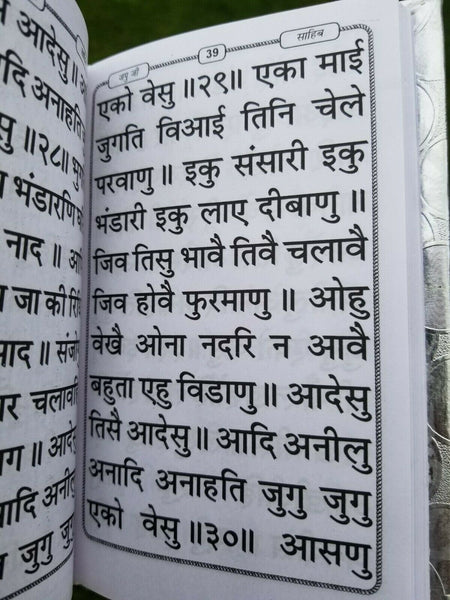 आदेसु॥
आदि अनाहति
सु ॥२८॥
भंडारणि
नाद ॥
जा की रिधि
साद॥ संजो
चलावहि
आग॥ आदे
अनादि अनीलु
जुगु जुगु
जपु जी
39
साहिब
एको वेसु ॥२९॥ एका माई
जुगति विआई तिनि चेले
परवाणु॥ इकु संसारी इकु
भंडारी इकु लाए दीबाणु॥
जिव तिसु भावै तिवै चलावै
जिव होवै फुरमाणु॥ ओहु
वेखै ओना नदरि न आवै
बहुता एहु विडाणु॥ आदेसु
तिसै आदेसु॥ आदि अनीलु
अनादि अनाहति जुगु जुगु
एको वेसु ॥३०॥ आसणु